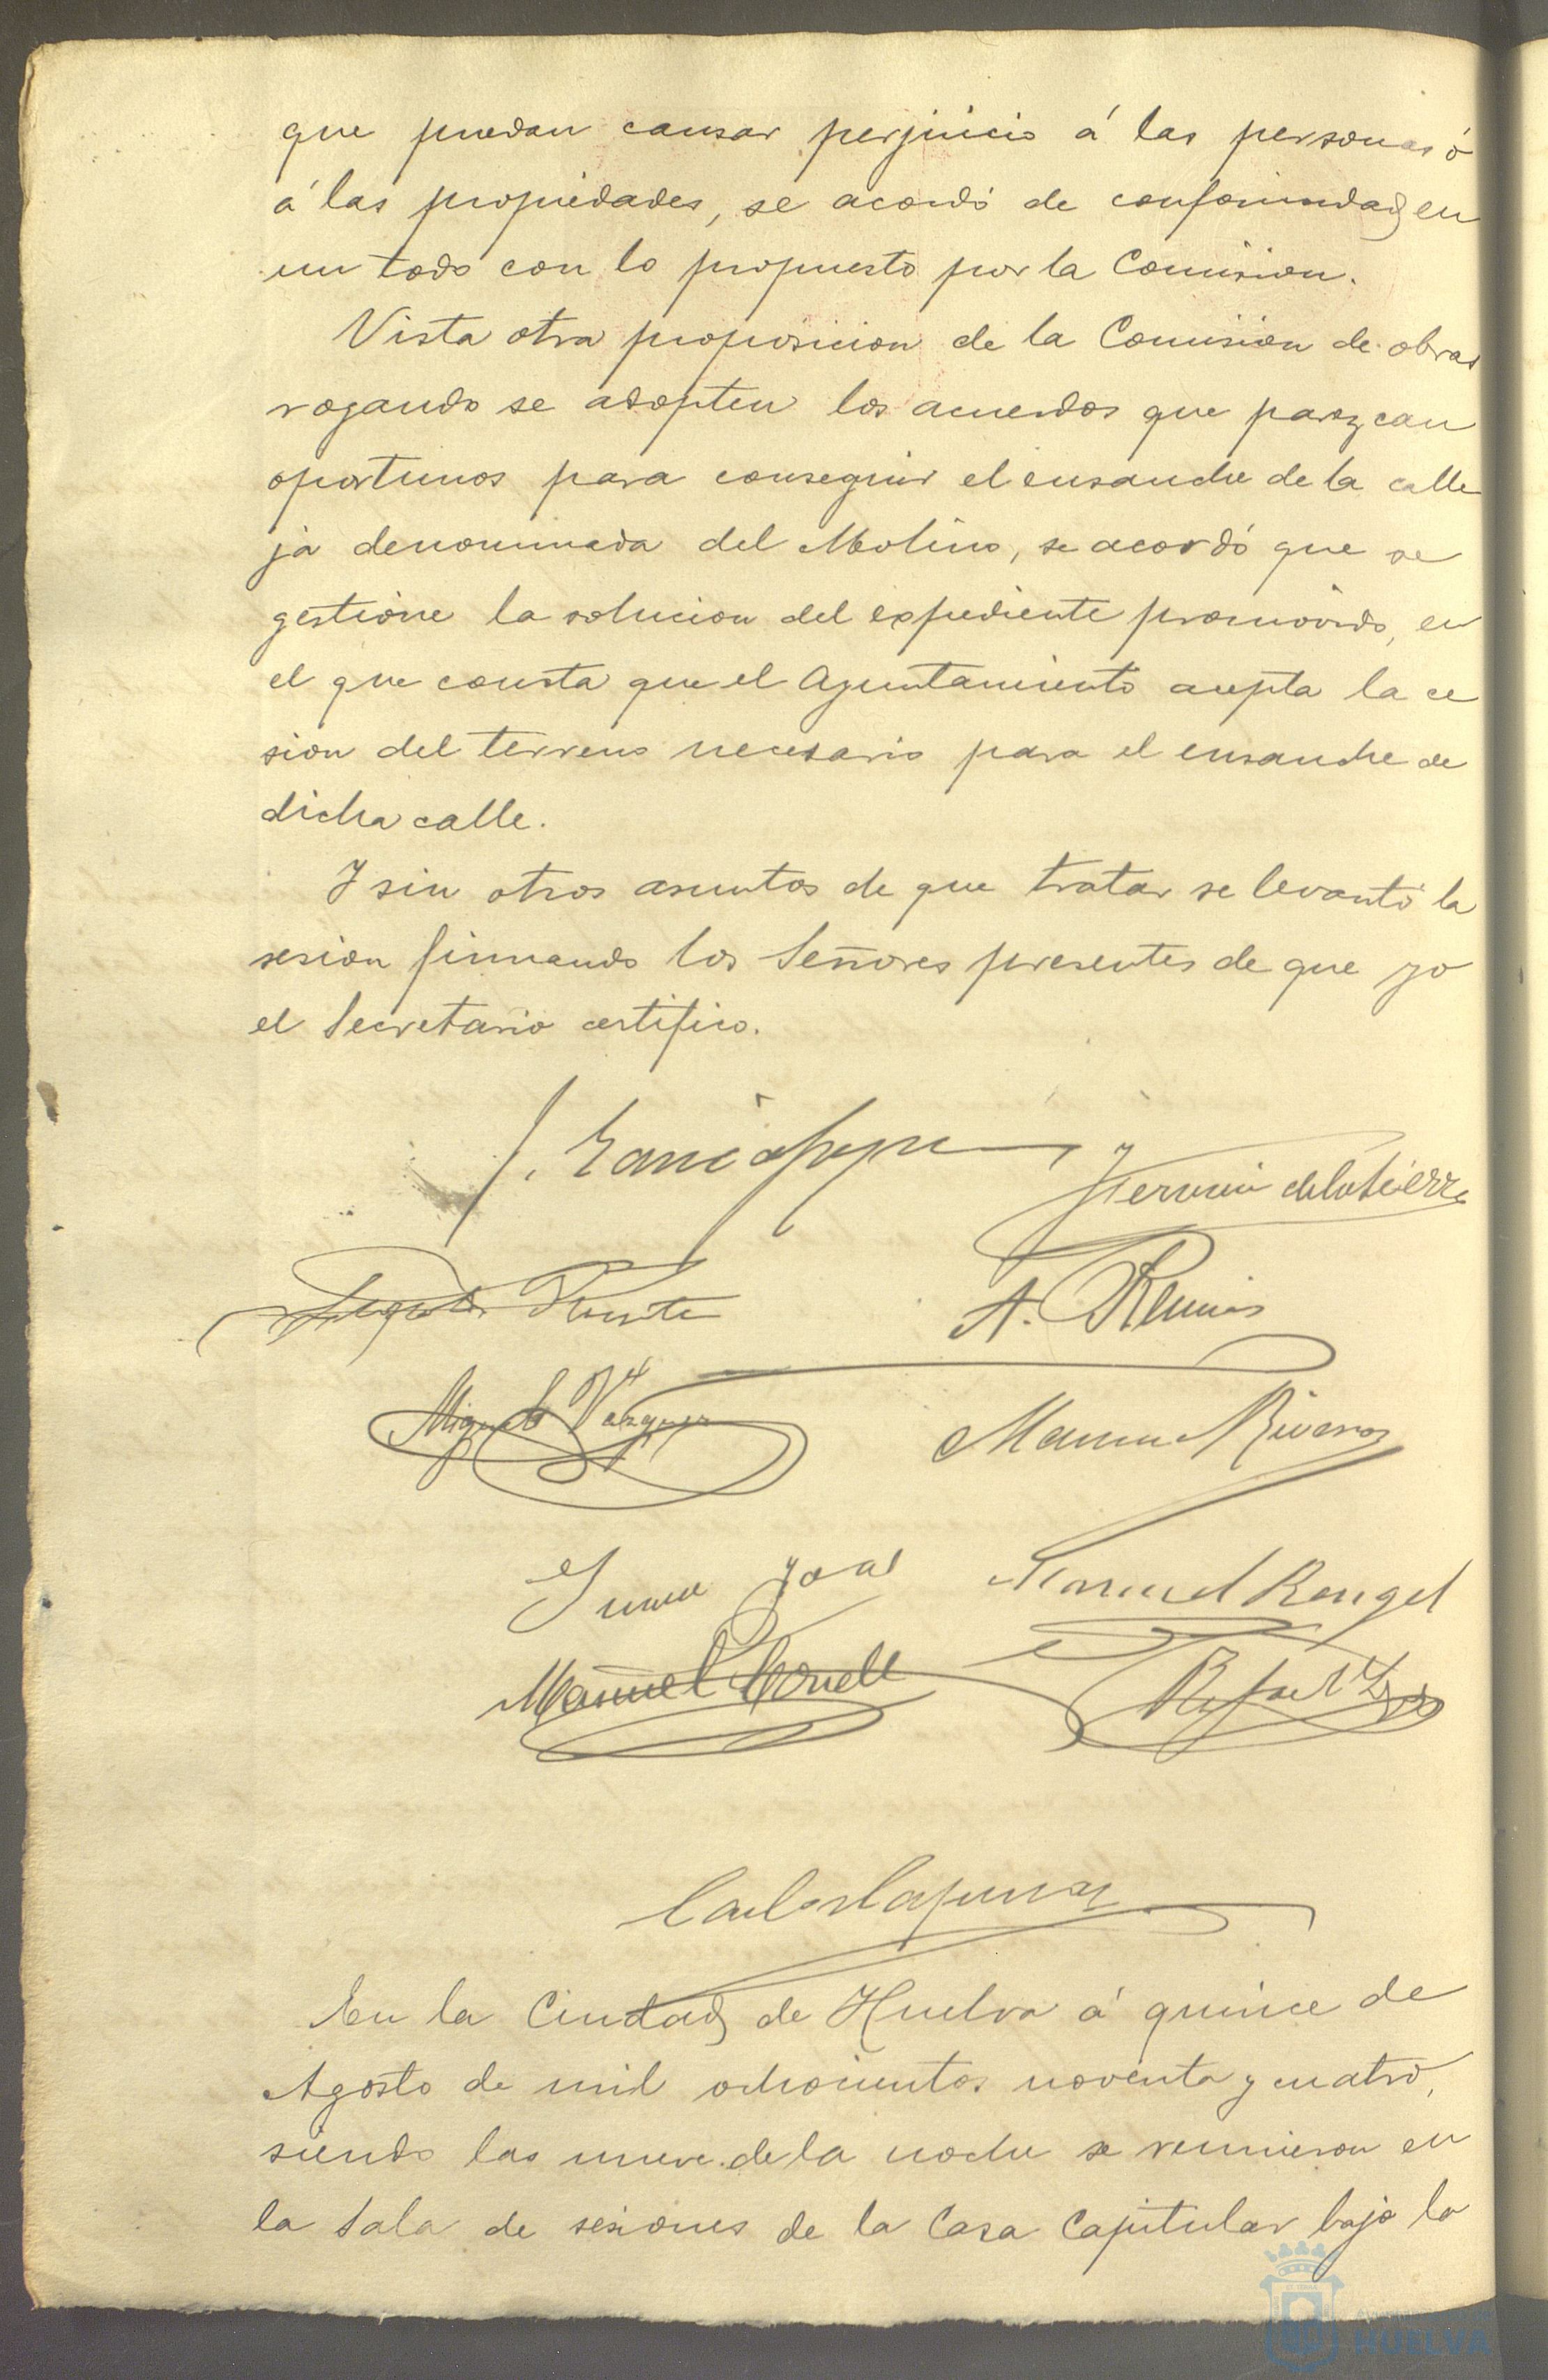 que puedan causar perjuicio á las personas ó
á las propiedades, se acordó de conformidad en
un todo con lo propuesto por la Comision.
Vista otra proposicion de la Comision de obras
rogando se adopten los acuerdos que parezcan
oportunos para conseguir el ensanche de la calle
ja denominada del Molino, se acordó que se
gestione la solucion del expediente promovido, en
el que consta que el Ayuntamiento acepta la ce
sion del terreno necesario para el ensanche de
dicha calle.
Y sin otros asuntos de que tratar se levantó la
sesion firmando los Señores presentes de que yo
el Secretario certifico.
J.
Fermin de la Sierra
A.
Miguel Vazquez
Manuel Riveros
Manuel Rangel
Manuel
Rafael
Carlos
En la Ciudad de Huelva á quince de
Agosto de mil ochocientos noventa y cuatro,
siendo las nueve de la noche se reunieron en
la Sala de sesiones de la Casa Capitular bajo la
HUELVA